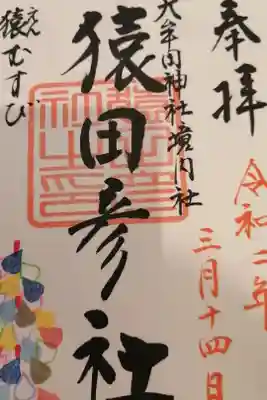 奉拝
令和二年
三月十四日
大牟田神社境内社
猿田彦社
えん
猿むすび